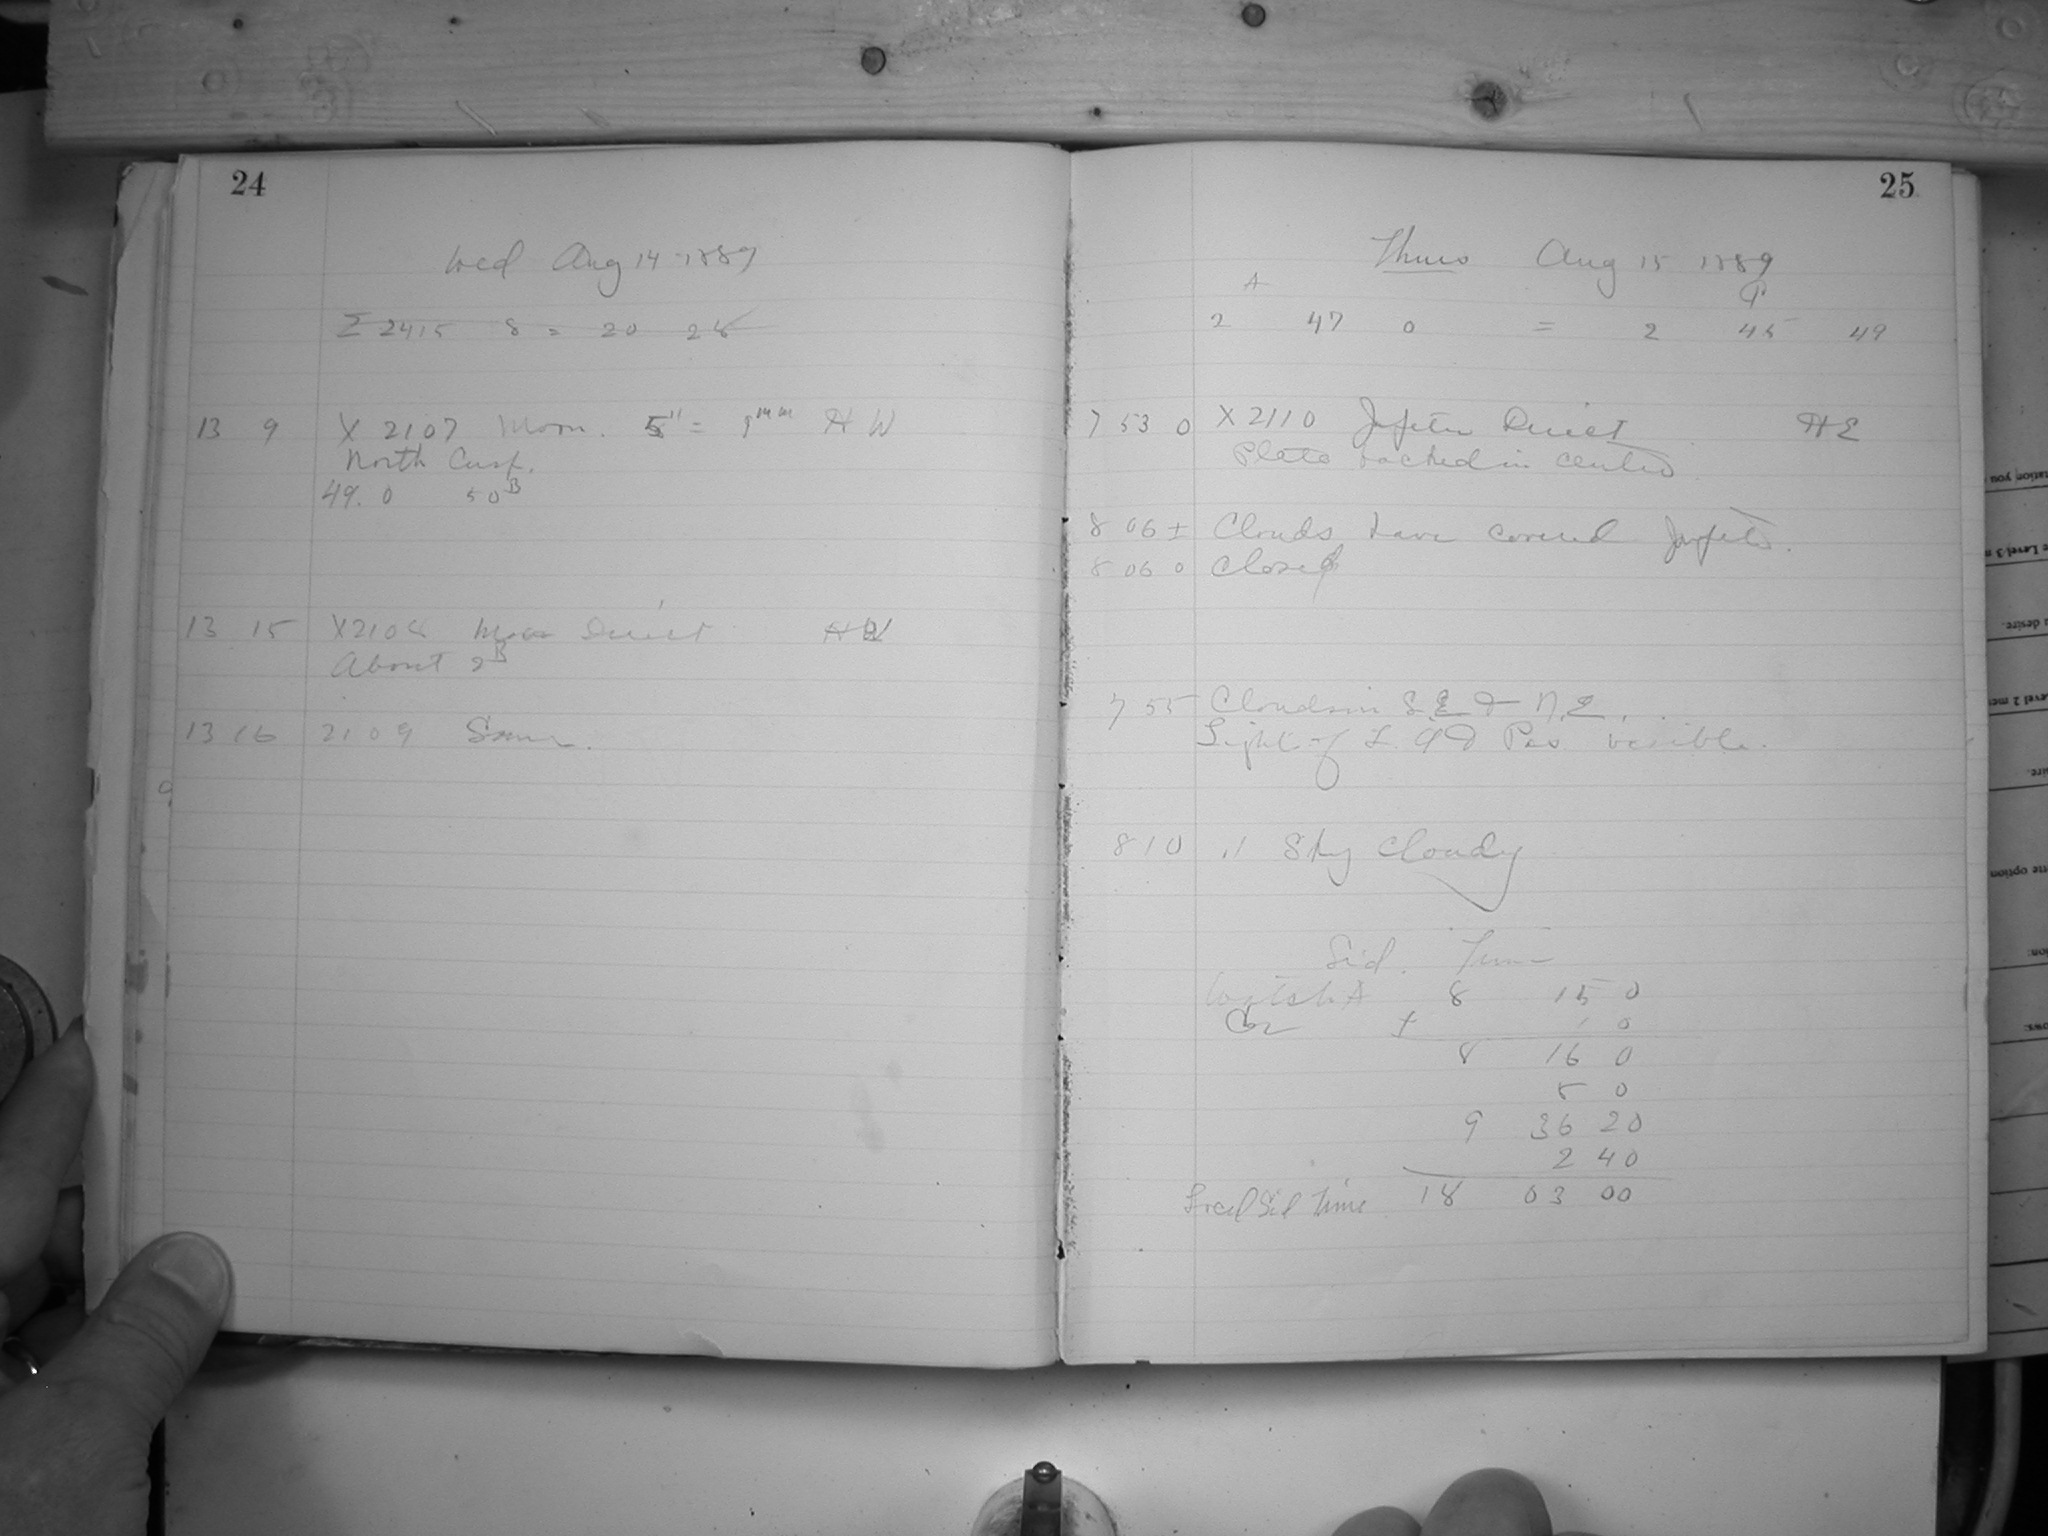 24
Wed Aug 14 1889
Σ 2415 8 = 20 28
13 9 X 2107 Moon. 5" = 1mm HW
North Cusp.
49.0 50B
13 15 X2108 Moon Direct HW
About 2B
13 16 2109 Same.
25
Thurs Aug 15 1889
A
2 47 0 = 2 45 49
7 53 0 X 2110 Jupiter Direct HE
Plate racked in centre
8 06 ± Clouds have covered Jupiter.
8 06 0 Closed
7 55 Clouds in S.E & N.E.
Light of visible.
8 10 Sky cloudy
Sid. Time
Watch A 8 15 0
Cor + 1 0
8 16 0
8 0
9 36 20
2 40
Local Sid Time 18 03 00